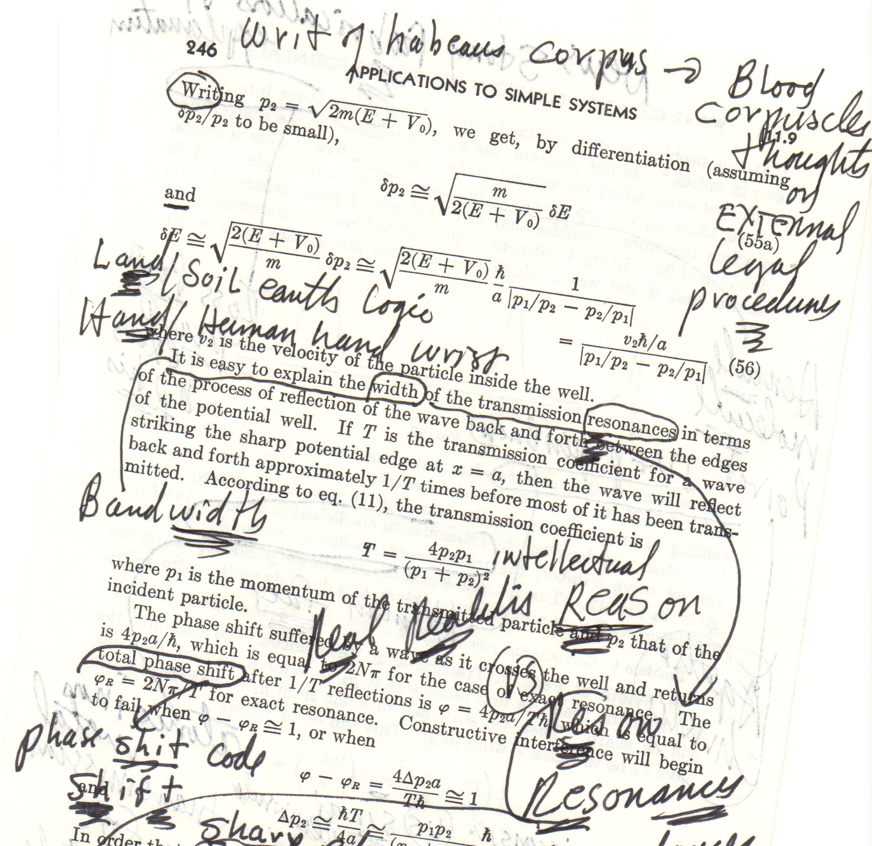 246 Writ of habeaus corpus → Blood
APPLICATIONS TO SIMPLE SYSTEMS
corpuscles
11.9
thoughts
on
EXTERNAL
legal
procedures
Writing p₂ = √(2m(E + V₀)), we get, by differentiation (assuming
δp₂/p₂ to be small),
δp₂ ≅ √(m / 2(E + V₀)) δE
(55a)
and
δE ≅ √(2(E + V₀) / m) δp₂ ≅ √(2(E + V₀) / m) ħ/a 1/|p₁/p₂ − p₂/p₁|
= v₂ħ/a / |p₁/p₂ − p₂/p₁| (56)
Land/Soil earths Logic
Hand/Human hand wrist
where v₂ is the velocity of the particle inside the well.
It is easy to explain the width of the transmission resonances in terms
of the process of reflection of the wave back and forth between the edges
of the potential well. If T is the transmission coefficient for a wave
striking the sharp potential edge at x = a, then the wave will reflect
back and forth approximately 1/T times before most of it has been trans-
mitted. According to eq. (11), the transmission coefficient is
Bandwidth
T = 4p₂p₁ / (p₁ + p₂)²
intellectual
REASON
where p₁ is the momentum of the transmitted particle and p₂ that of the
incident particle.
Real
The phase shift suffered by a wave as it crosses the well and returns
is 4p₂a/ħ, which is equal to 2Nπ for the case of exact resonance. The
total phase shift after 1/T reflections is φ = 4p₂a/Tħ, which is equal to
φ_R = 2Nπ/T for exact resonance. Constructive interference will begin
to fail when φ − φ_R ≅ 1, or when
VS
Reson
Resonances
phase shit code
shift
φ − φ_R = 4Δp₂a / Tħ ≅ 1
and
Δp₂ ≅ ħT/4a ≅ p₁p₂ ħ
In order that